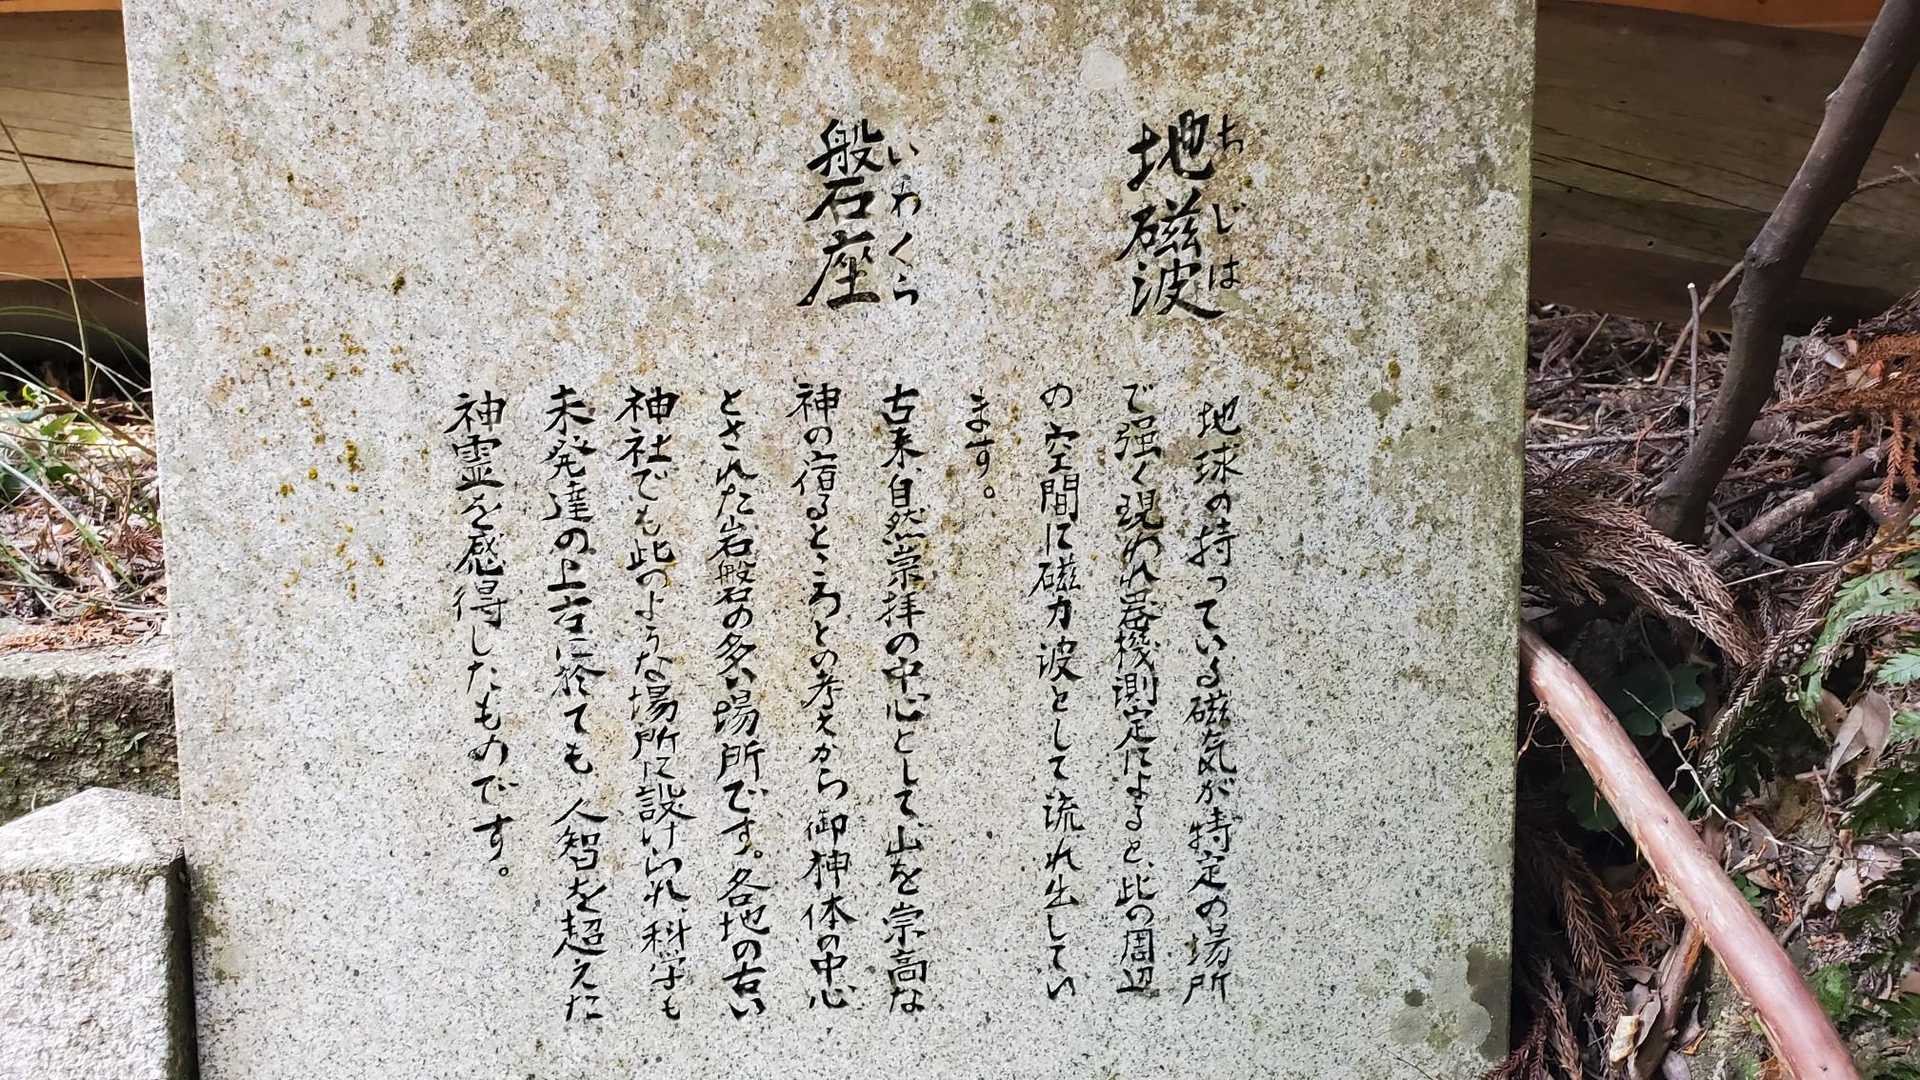 地磁波
ちじは
地球の持っている磁気が特定の場所
で強く現われ器機測定によると、此の周辺
の空間に磁力波として流れ出してい
ます。
磐座
いわくら
古来、自然崇拝の中心として、山を崇高な
神の宿るところとの考えから御神体の中心
とされた岩磐の多い場所です。各地の古い
神社でも此のような場所に設けられ、科学も
未発達の上古に於ても、人智を超えた
神霊を感得したものです。